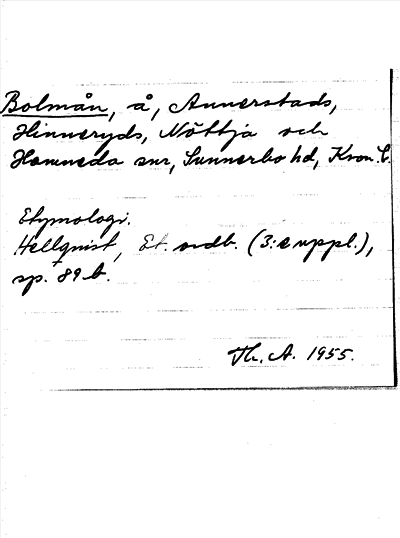 Bolmån, å, Annerstads,
Hinneryds, Nöttja och
Hamneda snr, Sunnerbo hd, Kron. l.
Etymologi.
Hellquist, Et. ordb. (3:e uppl.),
sp. 89 b.
Th. A. 1955.